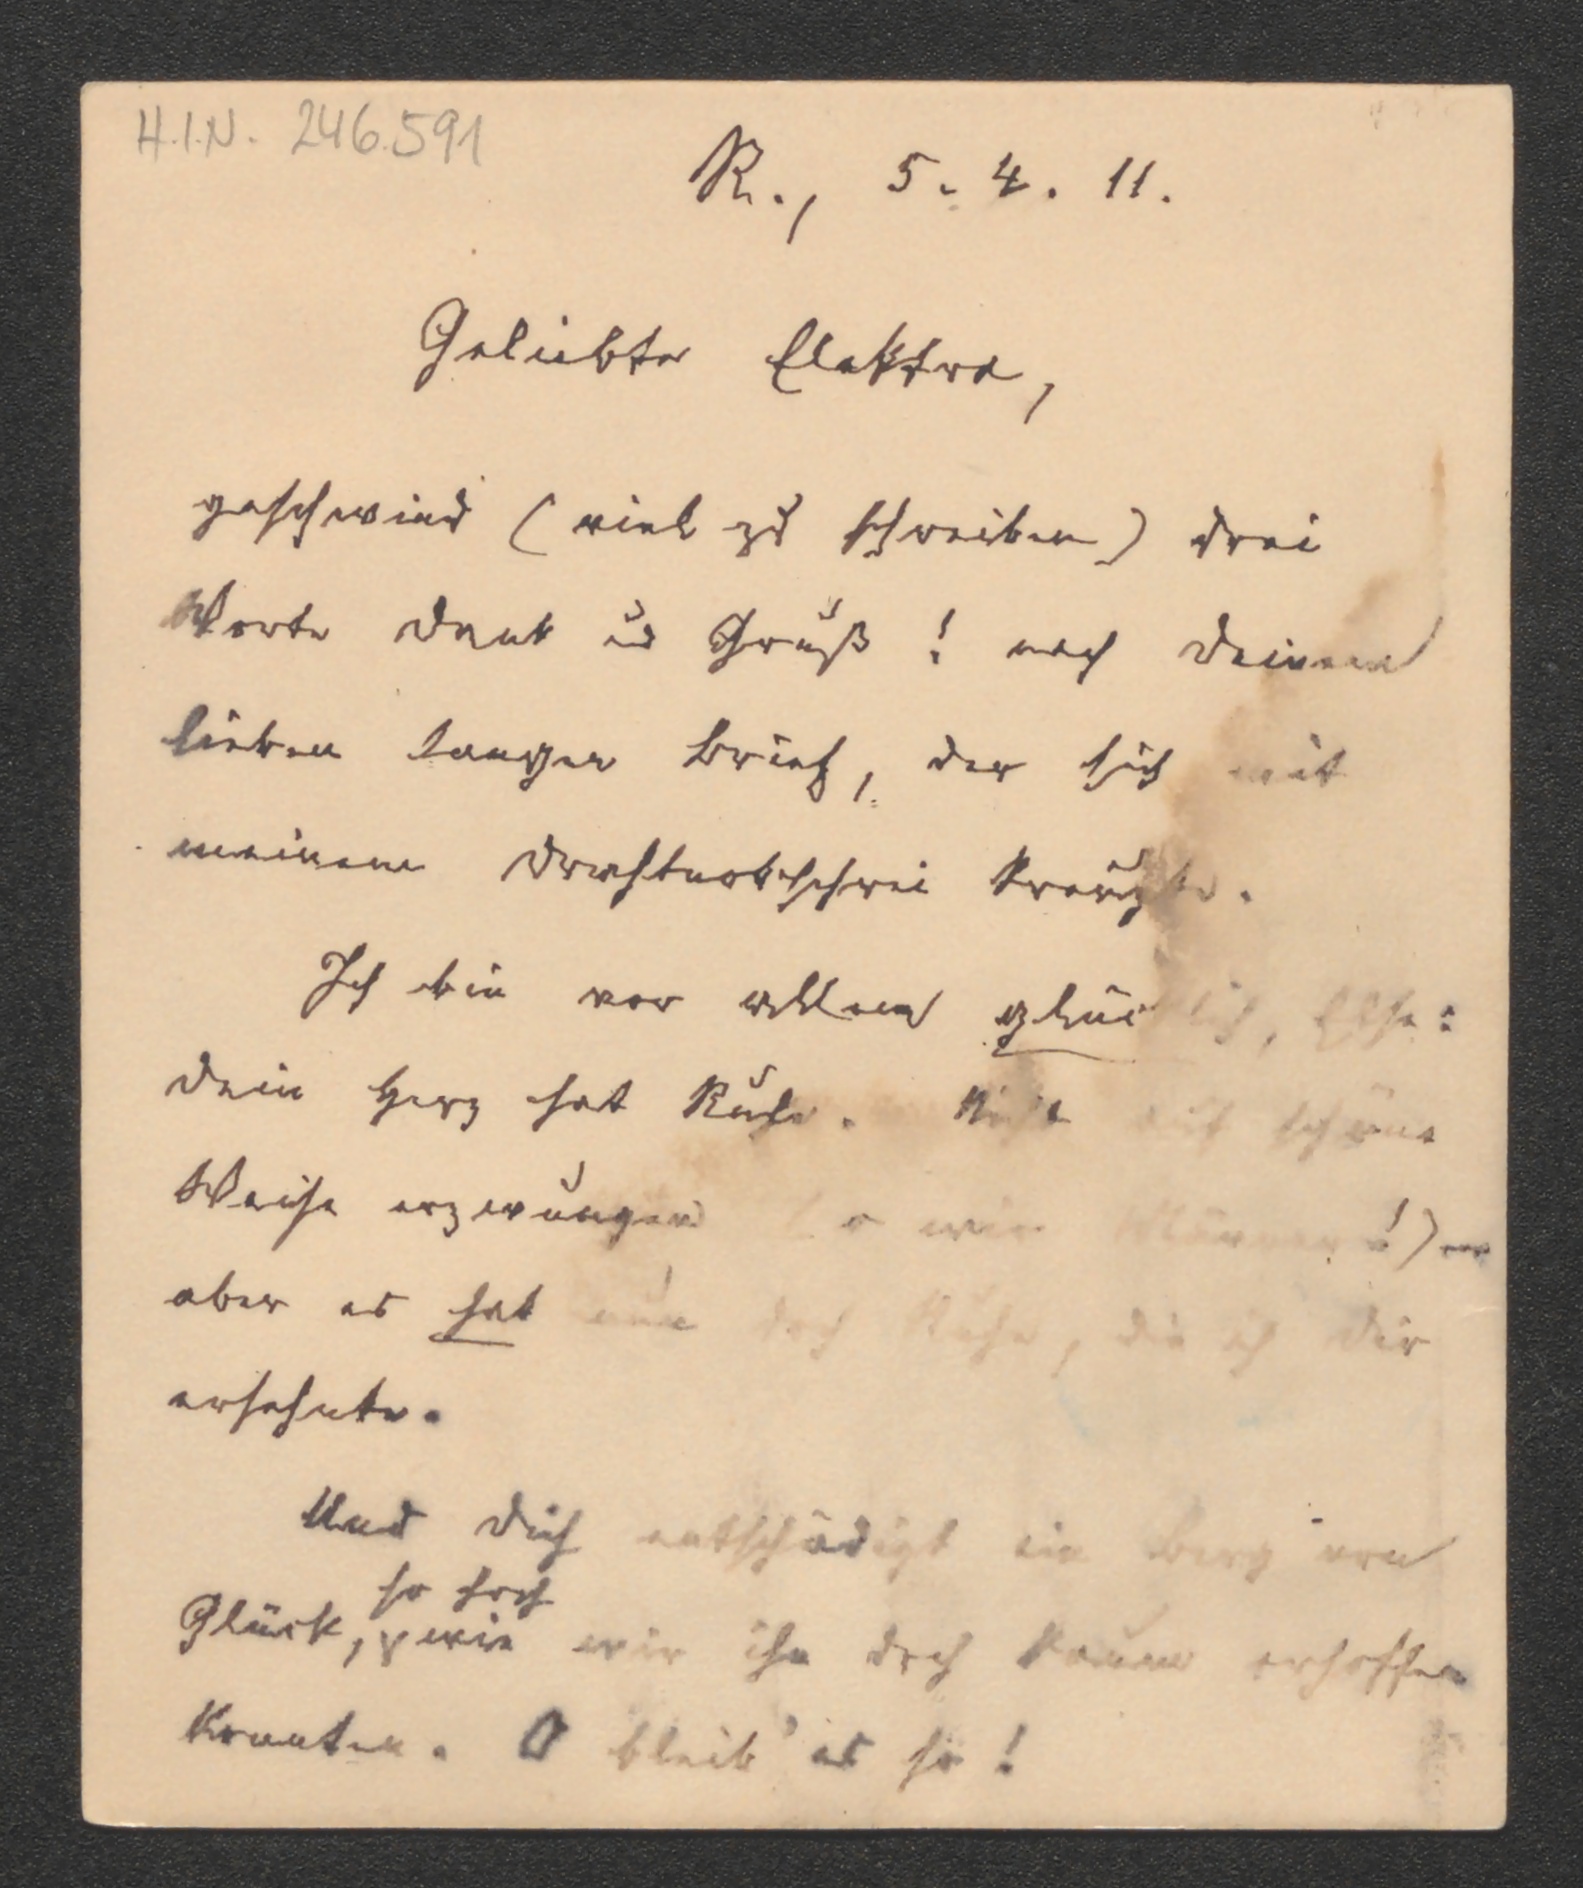 H.I.N. 246.591
R., 5. 4. 11.
Geliebte Elektra,
geschwind (viel zu schreiben) drei
Worte Dank und Gruß! nach Deinem
lieben langen Brief, der sich mit
meinem Drahtnotschrei kreuzte.
Ich bin vor allem glücklich, Else:
Dein Herz hat Ruhe. Nicht auf schöne
Weise erzwungen (o wir Männer!) –
aber es hat nun doch Ruhe, die ich Dir
ersehnte.
Und Dich entschädigt ein Berg von
so hoch
Glück, wie wir ihn doch kaum erhoffen
konnten. O bleib' es so!